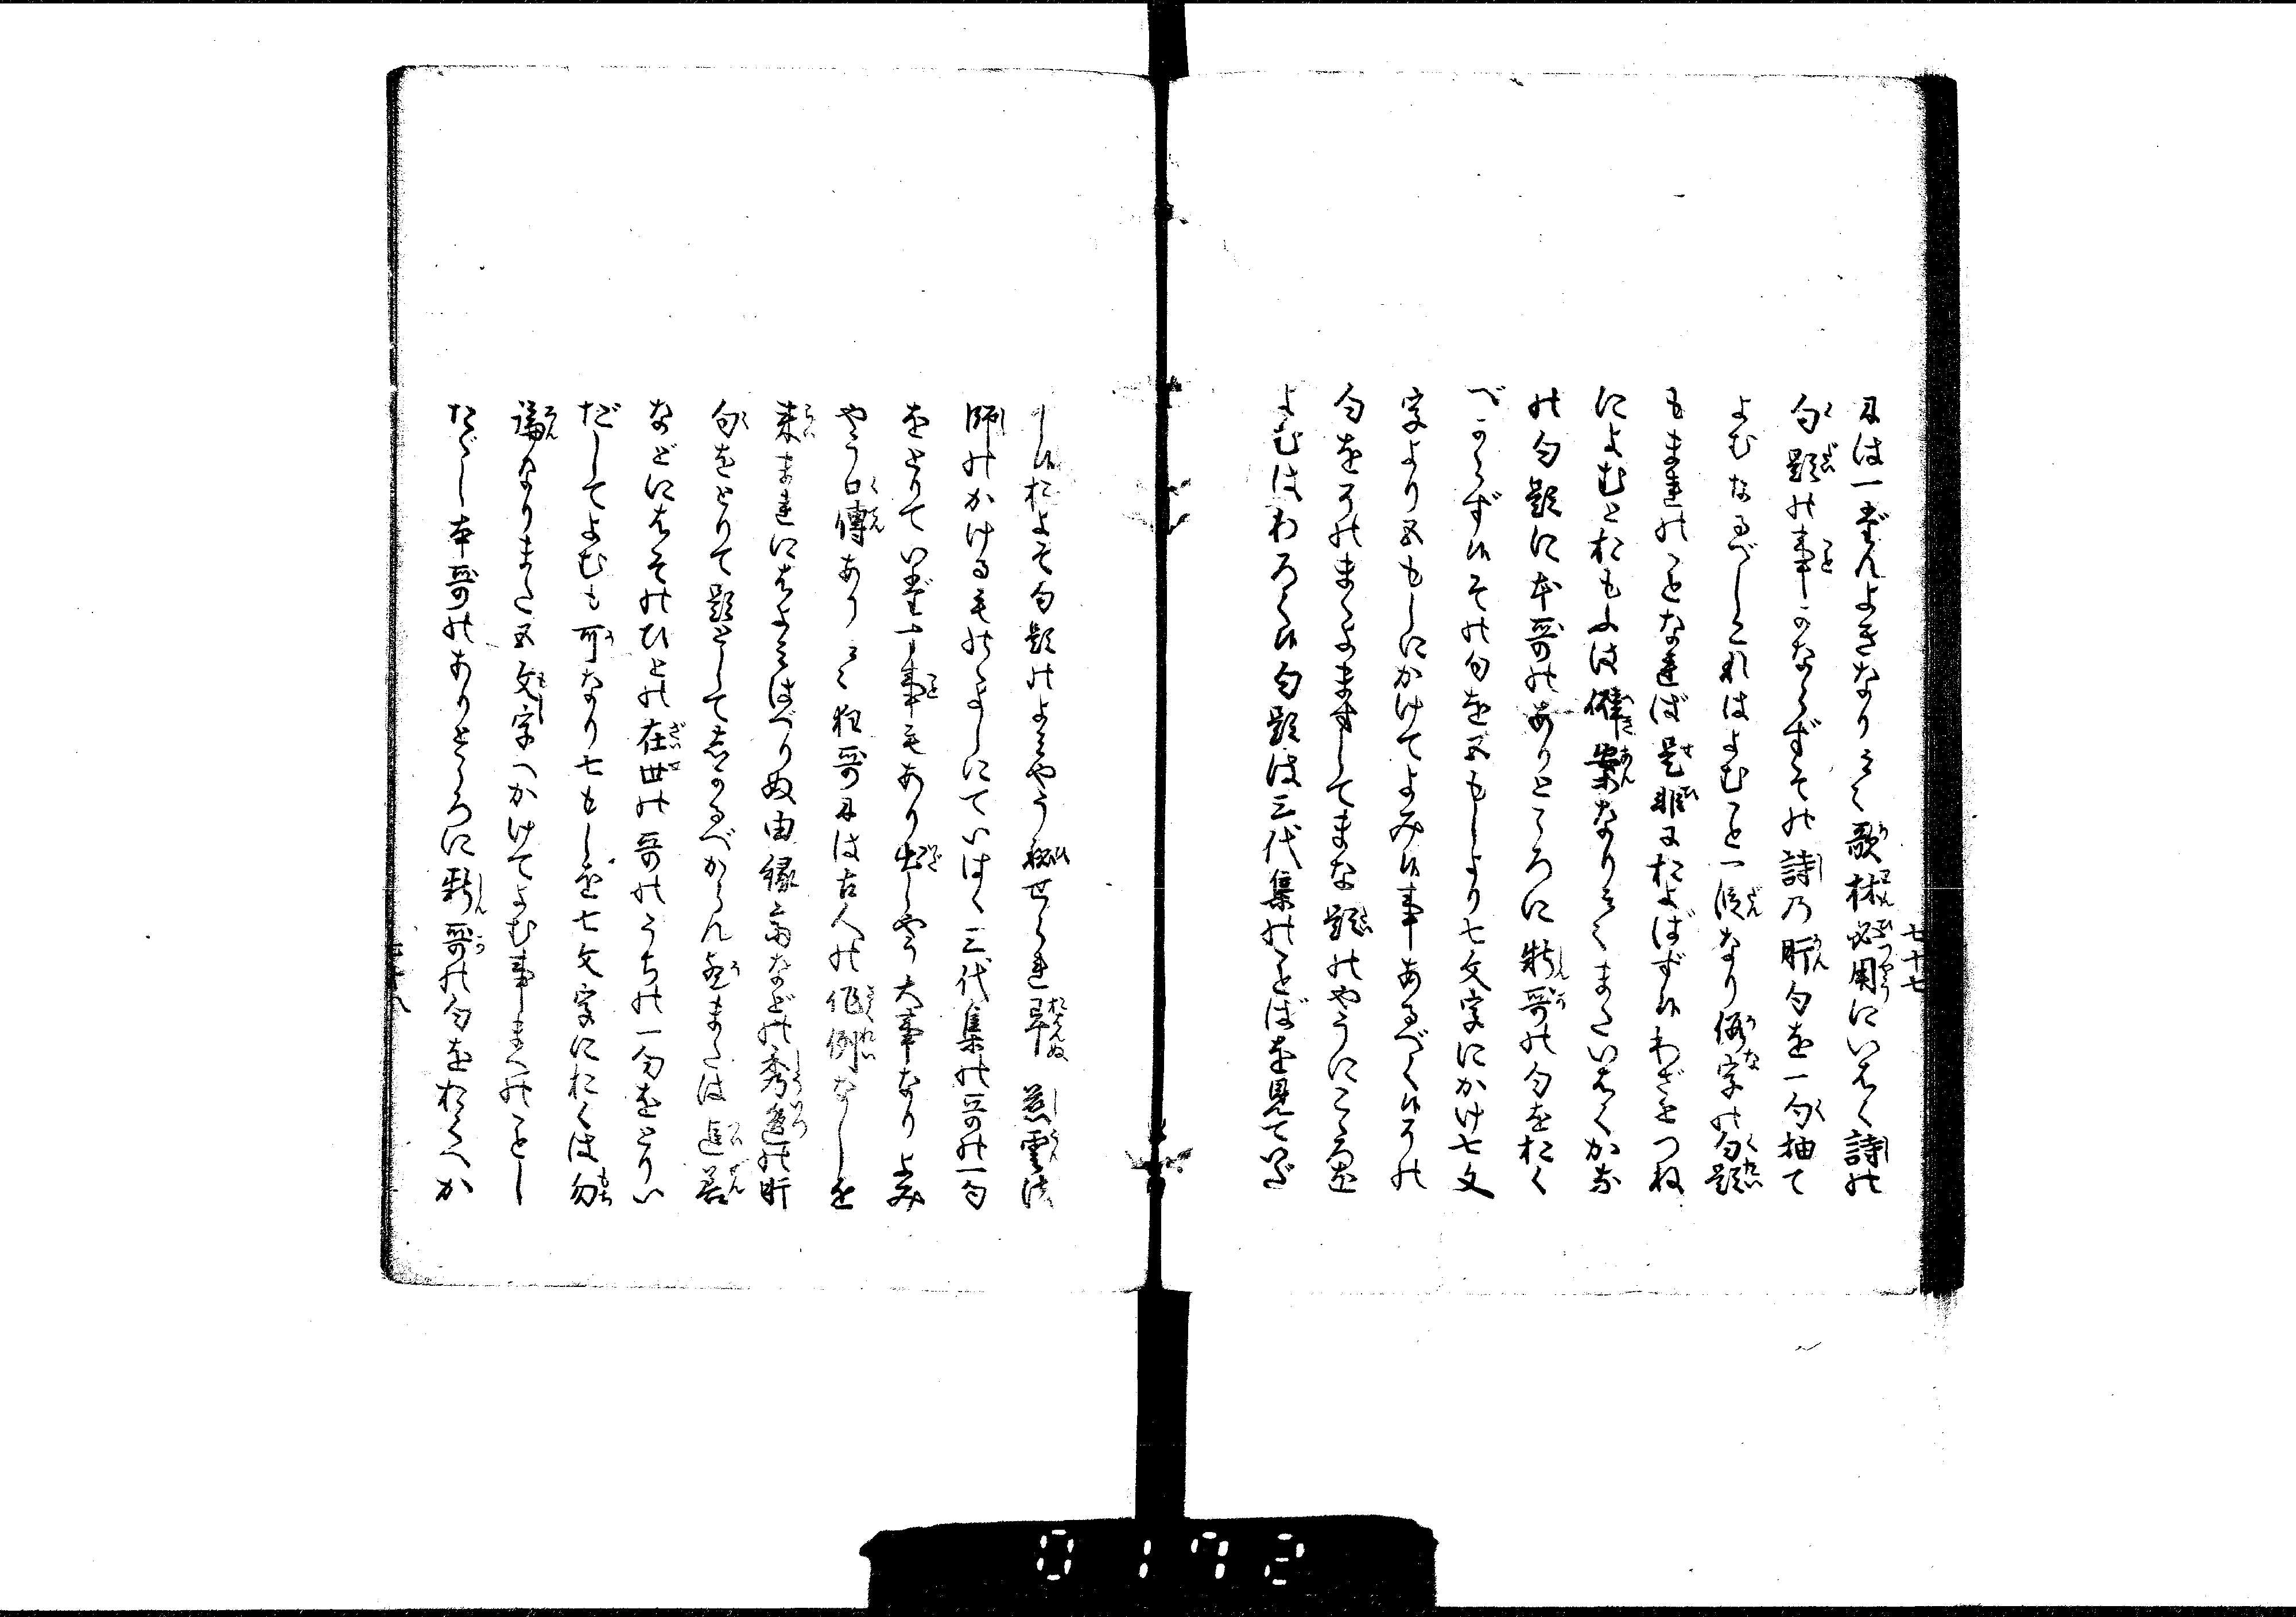 七十七
又は一だんよきなりさて歌林必用にいはく詩の
句題の事かならずその詩乃肝句を一句抽て
よむなるべしこれはよむこと一段なり仮字の句題
もまれのことなれば是非におよばず候わざとつね
によむとおもふは僻案なりさてまたいはくかな
の句題に本哥のありところに新哥の句をおく
べからず候その句を五もしより七文字にかけ七文
字より五もしにかけてよみ候事あるべく候その
句をそのまゝよまずしてまな題のやうにこゝろを
よむはわろく候句題は三代集のことばを見ていだ
し候およそ句題のよみやう秘せられ畢
師のかける物のよしにていはく三代集の哥の一句
をとりていだす事もあり出しやう大事なりよみ
やう口傳ありさて狂哥には古人の作例なしを
来まれにはよみはべりぬ由縁斎などの秀逸の肝
句をとりて題としてしかるべからん歟または追善
などにはそのひとの在世の哥のうちの一句をとりい
だしてよむも可なり七もしを七文字におくは勿
論なりまた五文字へかけてよむ事まへのことし
たゞし本哥のありところに新哥の句をおくべか